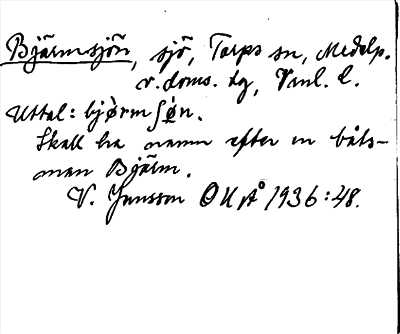 Bjärmsjön, sjö, Torps sn, Medelp.
v. doms. tg, Vnl. l.
Uttal: bjὸrmʃøn.
Skall ha namn efter en båts-
man Bjärm.
V. Jansson OUÅ 1936:48.